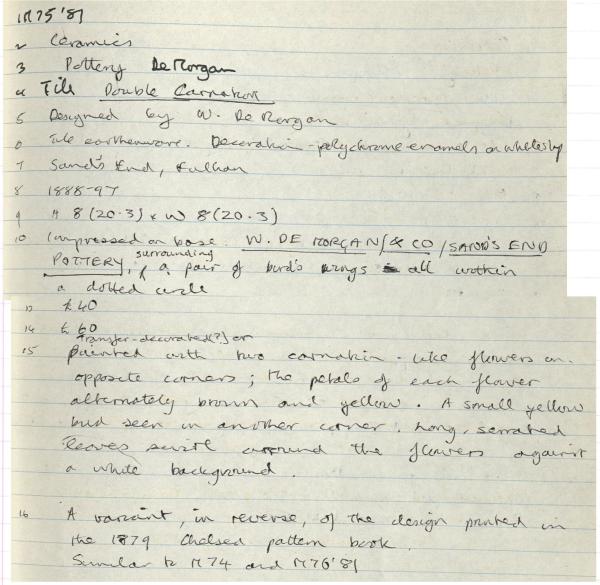 1 M75'81
2 Ceramics
3 Pottery De Morgan
4 Tile Double Carnation
5 Designed by W. De Morgan
6 Tile earthenware. Decoration - polychrome enamels on white slip
7 Sand's End, Fulham
8 1888-97
9 H 8 (20.3) x W 8 (20.3)
10 Impressed on base. W. DE MORGAN / & CO / SAND'S END
POTTERY, surrounding a pair of bird's wings all within
a dotted circle
13 £40
14 £60
Transfer-decorated(?) or
15 Painted with two carnation-like flowers on
opposite corners; the petals of each flower
alternately brown and yellow. A small yellow
bud seen in another corner. Long, serrated
leaves swirl around the flowers against
a white background.
16 A variant, in reverse, of the design printed in
the 1879 Chelsea pattern book.
Similar to M74 and M76'81